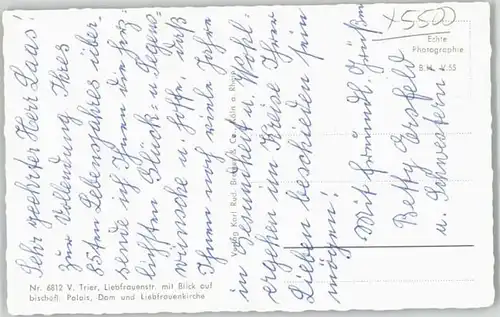 Sehr geehrter Herr Laas!
Zur Vollendung Ihres
85ten Lebensjahres über-
sende ich Ihnen die herz-
lichsten Glück- u. Segens-
wünsche u. hoffe, daß
Ihnen noch viele Jahre
in Gesundheit u. Wohl-
ergehen im Kreise Ihrer
Lieben beschieden sein
mögen!
Mit freundl. Grüßen
Betty Ersfeld
u. Schwestern
x5500
Echte
Photographie
V. 55
Verlag Karl Rud. Bremer & Co. Köln a. Rhein
Nr. 6812 V. Trier, Liebfrauenstr. mit Blick auf
bischöfl. Palais, Dom und Liebfrauenkirche